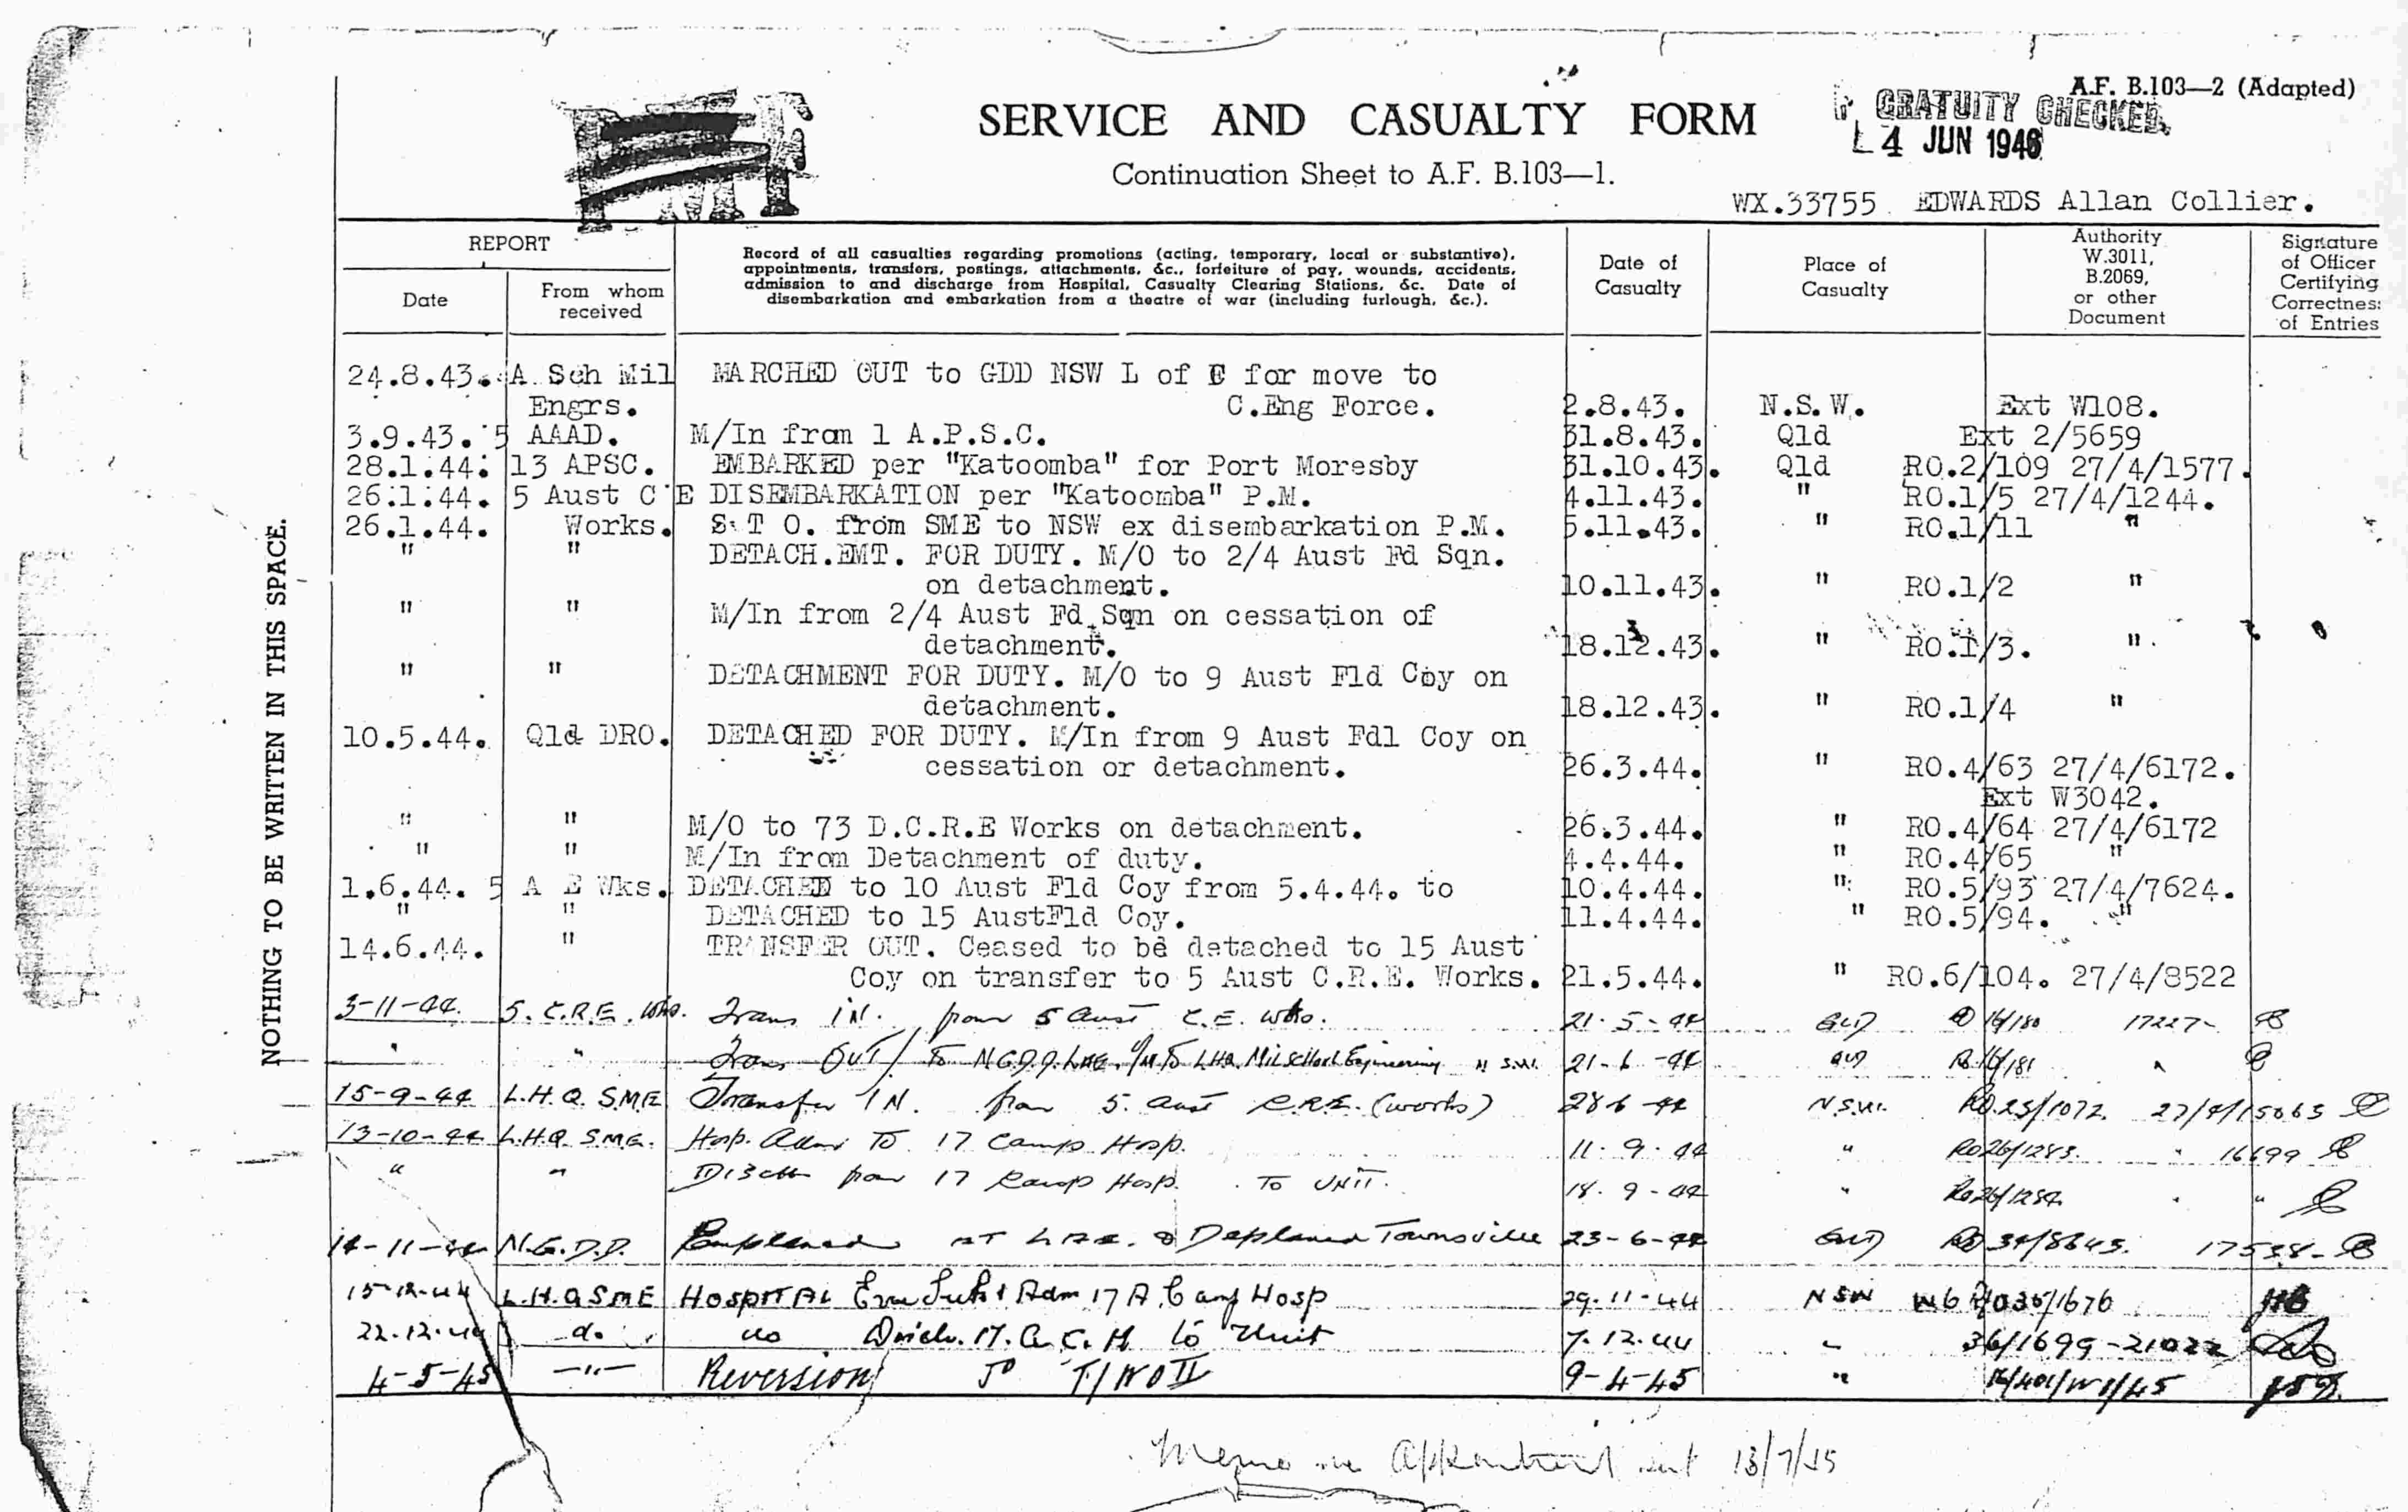 A.F. B.103—2 (Adapted)
GRATUITY CHECKED
4 JUN 1946
SERVICE AND CASUALTY FORM
Continuation Sheet to A.F. B.103—1.
WX.33755 EDWARDS Allan Collier.
REPORT
Date
From whom received
Record of all casualties regarding promotions (acting, temporary, local or substantive),
appointments, transfers, postings, attachments, &c., forfeiture of pay, wounds, accidents,
admission to and discharge from Hospital, Casualty Clearing Stations, &c. Date of
disembarkation and embarkation from a theatre of war (including furlough, &c.).
Date of Casualty
Place of Casualty
Authority W.3011, B.2069, or other Document
Signature of Officer Certifying Correctness of Entries
NOTHING TO BE WRITTEN IN THIS SPACE.
24.8.43. A Sch Mil MARCHED OUT to GDD NSW L of E for move to
Engrs. C.Eng Force. 2.8.43. N.S.W. Ext W108.
3.9.43. 5 AAAD. M/In from 1 A.P.S.C. 31.8.43. Qld Ext 2/5659
28.1.44. 13 APSC. EMBARKED per "Katoomba" for Port Moresby 31.10.43. Qld RO.2/109 27/4/1577.
26.1.44. 5 Aust C E DISEMBARKATION per "Katoomba" P.M. 4.11.43. " RO.1/5 27/4/1244.
26.1.44. Works. S T O. from SME to NSW ex disembarkation P.M. 5.11.43. " RO.1/11 "
" " DETACH.EMT. FOR DUTY. M/O to 2/4 Aust Fd Sqn.
on detachment. 10.11.43. " RO.1/2 "
" " M/In from 2/4 Aust Fd Sqn on cessation of
detachment. 18.12.43. " RO.1/3. "
" " DETACHMENT FOR DUTY. M/O to 9 Aust Fld Coy on
detachment. 18.12.43. " RO.1/4 "
10.5.44. Qld DRO. DETACHED FOR DUTY. M/In from 9 Aust Fdl Coy on
cessation or detachment. 26.3.44. " RO.4/63 27/4/6172.
Ext W3042.
" " M/O to 73 D.C.R.E Works on detachment. 26.3.44. " RO.4/64 27/4/6172
" " M/In from Detachment of duty. 4.4.44. " RO.4/65 "
1.6.44. 5 A E Wks. DETACHED to 10 Aust Fld Coy from 5.4.44. to 10.4.44. " RO.5/93 27/4/7624.
" " DETACHED to 15 AustFld Coy. 11.4.44. " RO.5/94. "
14.6.44. " TRANSFER OUT. Ceased to be detached to 15 Aust
Coy on transfer to 5 Aust C.R.E. Works. 21.5.44. " RO.6/104. 27/4/8522
3-11-44. 5. C.R.E. Wks. Trans IN. from 5 Aust C.E. Wks. 21-5-44 QLD 16/180 17227-
" " Trans OUT/ To N.G.D.D. LAE. To LHQ. Mil School Engineering N.S.W. 21-6-44 QLD 16/181 "
15-9-44 L.H.Q. SME Transfer IN. from 5. Aust C.R.E. (works) 28-6-44 N.S.W. RO.23/1072. 27/4/15063
13-10-44 L.H.Q. S.M.E. Hosp. Adm To 17 Camp Hosp. 11-9-44 " RO26/1283. " 16699
" " Disch from 17 Camp Hosp. To UNIT. 18-9-44 " RO26/1284. " "
14-11-44 N.G.D.D. Emplaned AT LAE. & Deplaned Townsville 23-6-44 QLD RO 34/8643. 17538-
15-12-44 L.H.Q SME HOSPITAL Adm 17 A. Camp Hosp 29-11-44 NSW RO35/1676
22.12.44 do do Disch. 17. A. C. H to Unit 7.12.44 " 36/1699-21022
4-5-45 " Reversion To T/WO II 9-4-45 "
Memo 13/7/55